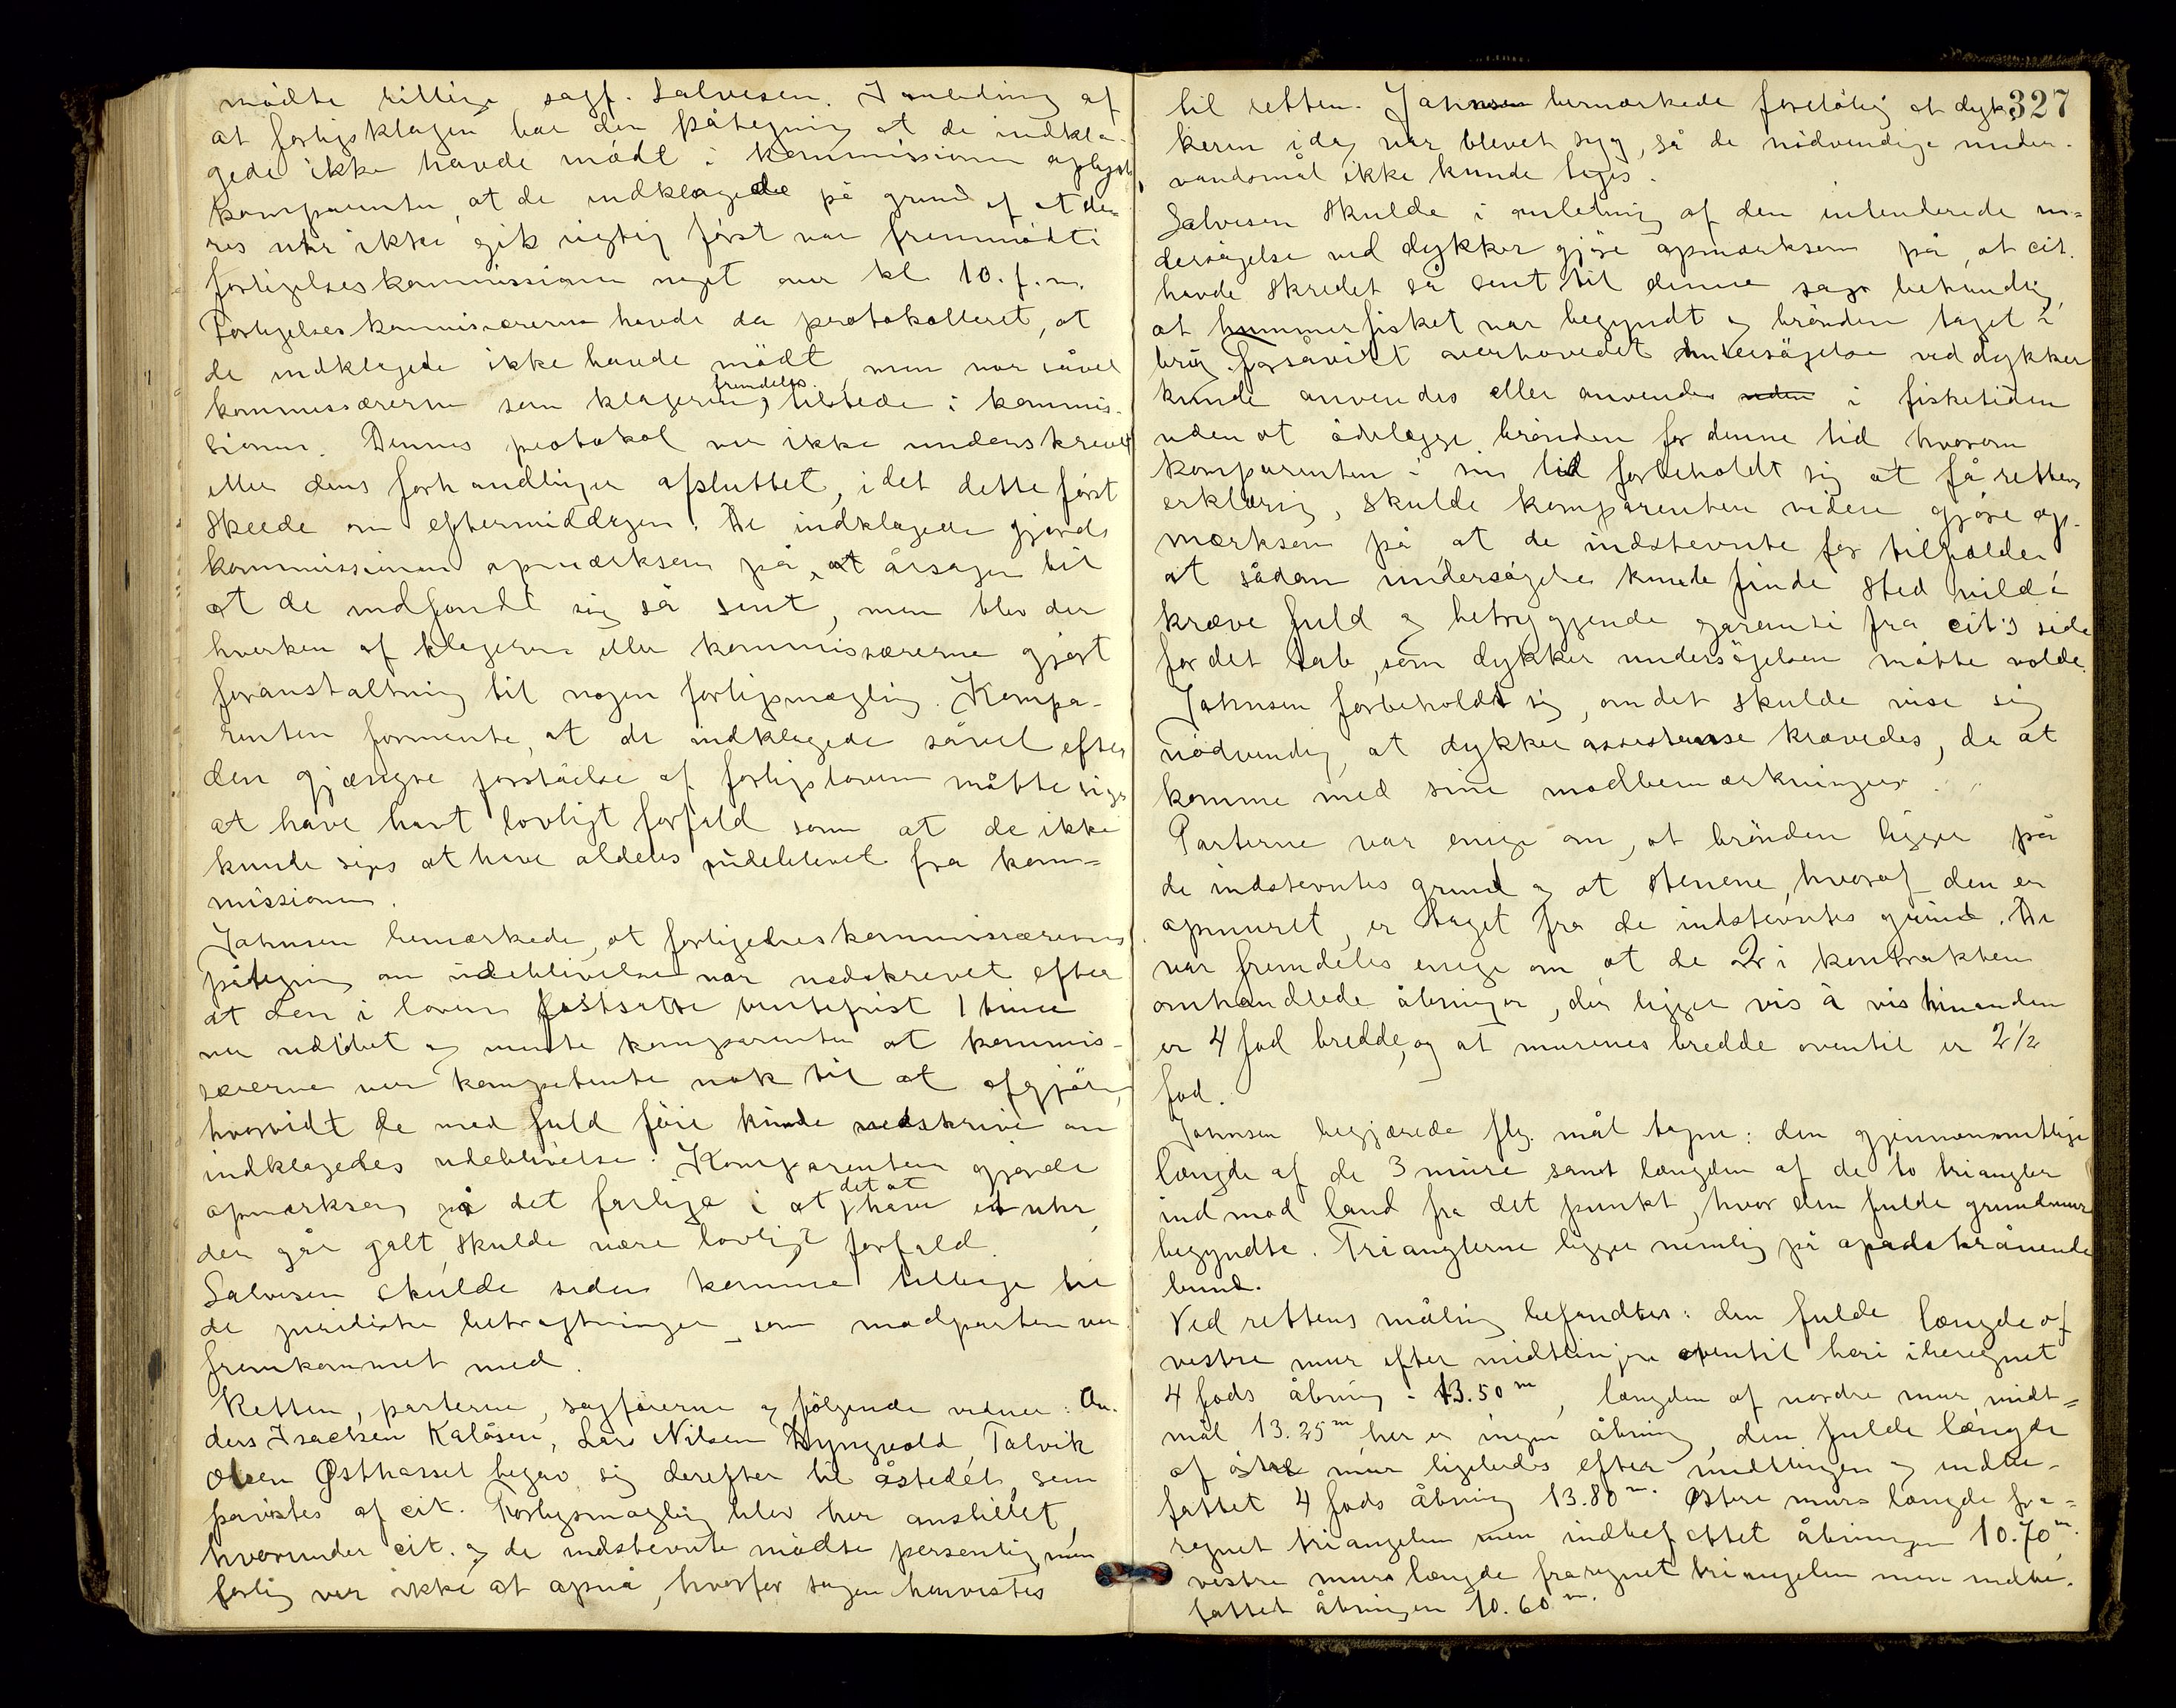 mödte rettidig sagf. Salvesen. I anledning af
at forligsklagen har den påtegning at de indkla-
gede ikke havde mödt i kommissionen oplyste
komparenten, at de indklagede på grund af at de-
res uhr ikke gik rigtig först var fremmödt i
forligelseskommissionen noget over kl 10. f.m.
Forligelseskommissærerne havde da protokolleret, at
de indklagede ikke havde mödt, men var såvel
kommissærerne som klagerne fremdeles tilstede i kommis-
sionen. Dennes protokol var ikke underskrevet
eller dens forhandlinger afsluttet, idet dette först
skeede om eftermiddagen. De indklagede gjorde
kommissionen opmærksom på, at årsagen til
at de indfandt sig så sent, men blev der
hverken af klagerne eller kommissærerne gjort
foranstaltning til nogen forligsmægling. Kompa-
renten formente, at de indklagede såvel efter
den gjængse forståelse af forligsloven måtte siges
at have havt lovligt forfald som at de ikke
kunde siges at have aldeles udeblevet fra kom-
missionen.
Jahnsen bemærkede, at forligelseskommissærernes
påtegning om udeblivelse var nedskrevet efter
at den i loven fastsatte ventefrist 1 time
var udlöbet og mente komparenten at kommis-
særerne var kompetente nok til at afgjöre,
hvorvidt de med fuld föie kunde nedskrive om
indklagedes udeblivelse. Komparenten gjorde
opmærksom på det farlige i at det at have et uhr,
der går galt, skulde være lovligt forfald.
Salvesen skulde siden komme tilbage til
de juridiske betragtninger som modparten var
fremkommet med.
Retten, parterne, sagförerne og fölgende vidner: An-
ders Isachsen Kalåsen, Lars Nilsen Lyngvold, Talvik
Olsen Østhasset begav sig derefter til åstedet, som
påvistes af cit. Forligsmægling blev her anstillet,
hvorunder cit. og de indstevnte mödte personlig, men
forlig var ikke at opnå, hvorfor sagen henvistes
327
til retten. Jahnsen bemærkede foreløbig at dyk-
keren idag var blevet syg, så de nödvendige under-
vandsmål ikke kunde tages.
Salvesen skulde i anledning af den intenderede un-
dersögelse ved dykker gjöre opmærksom på, at cit.
havde skredet så sent til denne sags behandling,
at hummerfisket var begyndt og brönden taget i
brug. Forsåvidt overhovedet undersögelse ved dykker
kunde anvendes eller anvendes uden i fisketiden
uden at ödelægge brönden for denne tid hvorom
komparenten i sin tid forbeholdt sig at få rettens
erklæring, skulde komparenten videre gjöre op-
mærksom på at de indstevnte for tilfælde
at sådan undersögelse kunde finde sted vilde
kræve fuld og betryggende garanti fra cit's side
for det tab, som dykker undersögelsen måtte volde.
Jahnsen forbeholdt sig, om det skulde vise sig
nödvendig, at dykker assistanse krævedes, da at
komme med sine modbemærkninger.
Parterne var enige om, at brönden ligger på
de indstevntes grund og at stenene, hvoraf den er
opmuret, er taget fra de indstevntes grund. De
var fremdeles enige om at de 2 i kontrakten
omhandlede åbninger, der ligger vis à vis hinanden
er 4 fod bredde, og at murenes bredde oventil er 2 1/2
fod.
Jahnsen begjærede flg. mål tagne: den gjennemsnitlige
længde af de 3 mure samt længden af de to triangler
ind mod land fra det punkt, hvor den fulde grundmur
begyndte. Trianglerne ligger nemlig på opadskrånende
bund.
Ved rettens måling befandtes: den fulde længde af
vestre mur efter midtlinjen oventil heri iberegnet
4 fods åbning - 13.50 m, længden af nordre mur, midt-
mål 13.25 m, her er ingen åbning, den fulde længde
af östre mur ligeledes efter midtlinjen og indbe-
fattet 4 fods åbning 13.80 m. Østre murs længde fra-
regnet triangelen men indbefattet åbningen 10.70 m.
vestre murs længde fraregnet triangelen men indbe-
fattet åbningen 10.60 m.